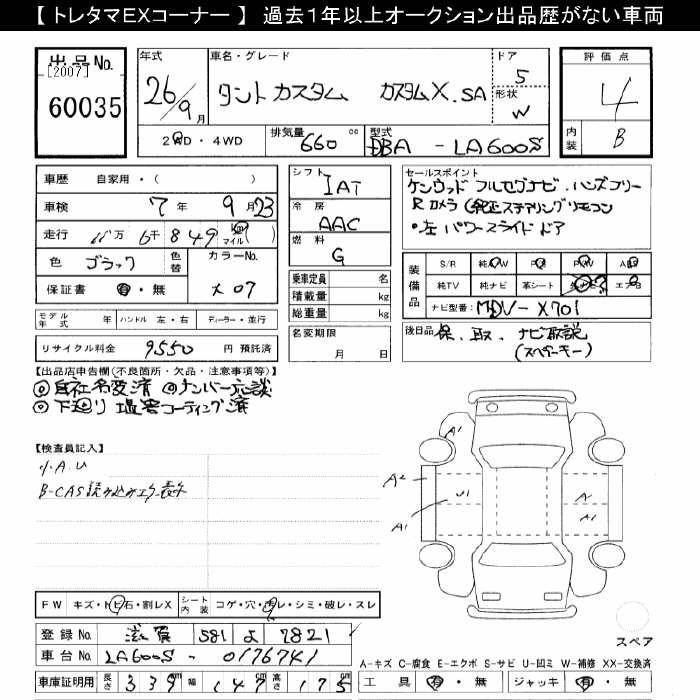 【 トレタマEXコーナー 】 過去１年以上オークション出品歴がない車両
出品No. [2007] 60035
年式 26/9月
車名・グレード タント カスタム カスタムX.SA
ドア 5 形状 W
評価点 4 内装 B
2WD・4WD 排気量 660 cc 型式 DBA - LA600S
車歴 自家用・( )
車検 7年 9月23
走行 万 6千849 km マイル ( )
色 ブラック 色替 カラーNo. X07
保証書 有・無
モデル年式 年 ハンドル 左・右 ディーラー・並行
リサイクル料金 9550 円 預託済
シフト IAT
冷房 AAC
燃料 G
乗車定員 名
積載量 kg
総重量 kg
名変期限 月 日
セールスポイント
ケンウッド フルセグナビ.ハンズフリー
Rカメラ (純正ステアリングリモコン
・左 パワースライドドア
装備品 S/R 純AW P/S P/W ABS
純TV 純ナビ 革シート エアB
ナビ型番: MDV-X701
後日品 保.取.ナビ取説
(スペアーキー)
【出品店申告欄(不良箇所・欠品・注意事項等)】
◎自社名変済 ◎ナンバー応談
◎下廻り 塩害コーティング済
【検査員記入】
小A.U
B-CAS読み込みエラー表示
A1
A2
U1
A1
A
A1
FW キズ・トビ石・割レX シート内装 コゲ・穴・汚レ・シミ・破レ・スレ
登録No. 滋賀 581 よ 7821
車台No. LA600S - 0176741
車庫証明用 長さ 339 cm 幅 147 cm 高さ 175 cm
スペア
A-キズ C-腐食 E-エクボ S-サビ U-凹ミ W-補修 XX-交換済
工具 有・無 ジャッキ 有・無